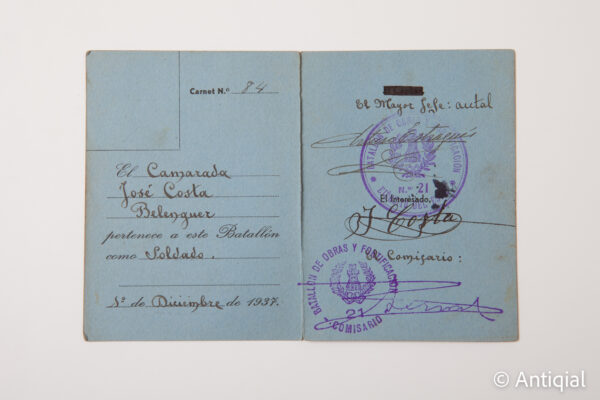 Carnet N.º 84
El Camarada
José Costa
Belenguer
pertenece a este Batallón
como Soldado.
1º de Diciembre de 1937.
El Mayor Jefe: actal
BATALLON DE OBRAS Y FORTIFICACION
N.º 21
El Interesado,
J Costa
El Comisario:
BATALLON DE OBRAS Y FORTIFICACION
21
COMISARIO
© Antiqial